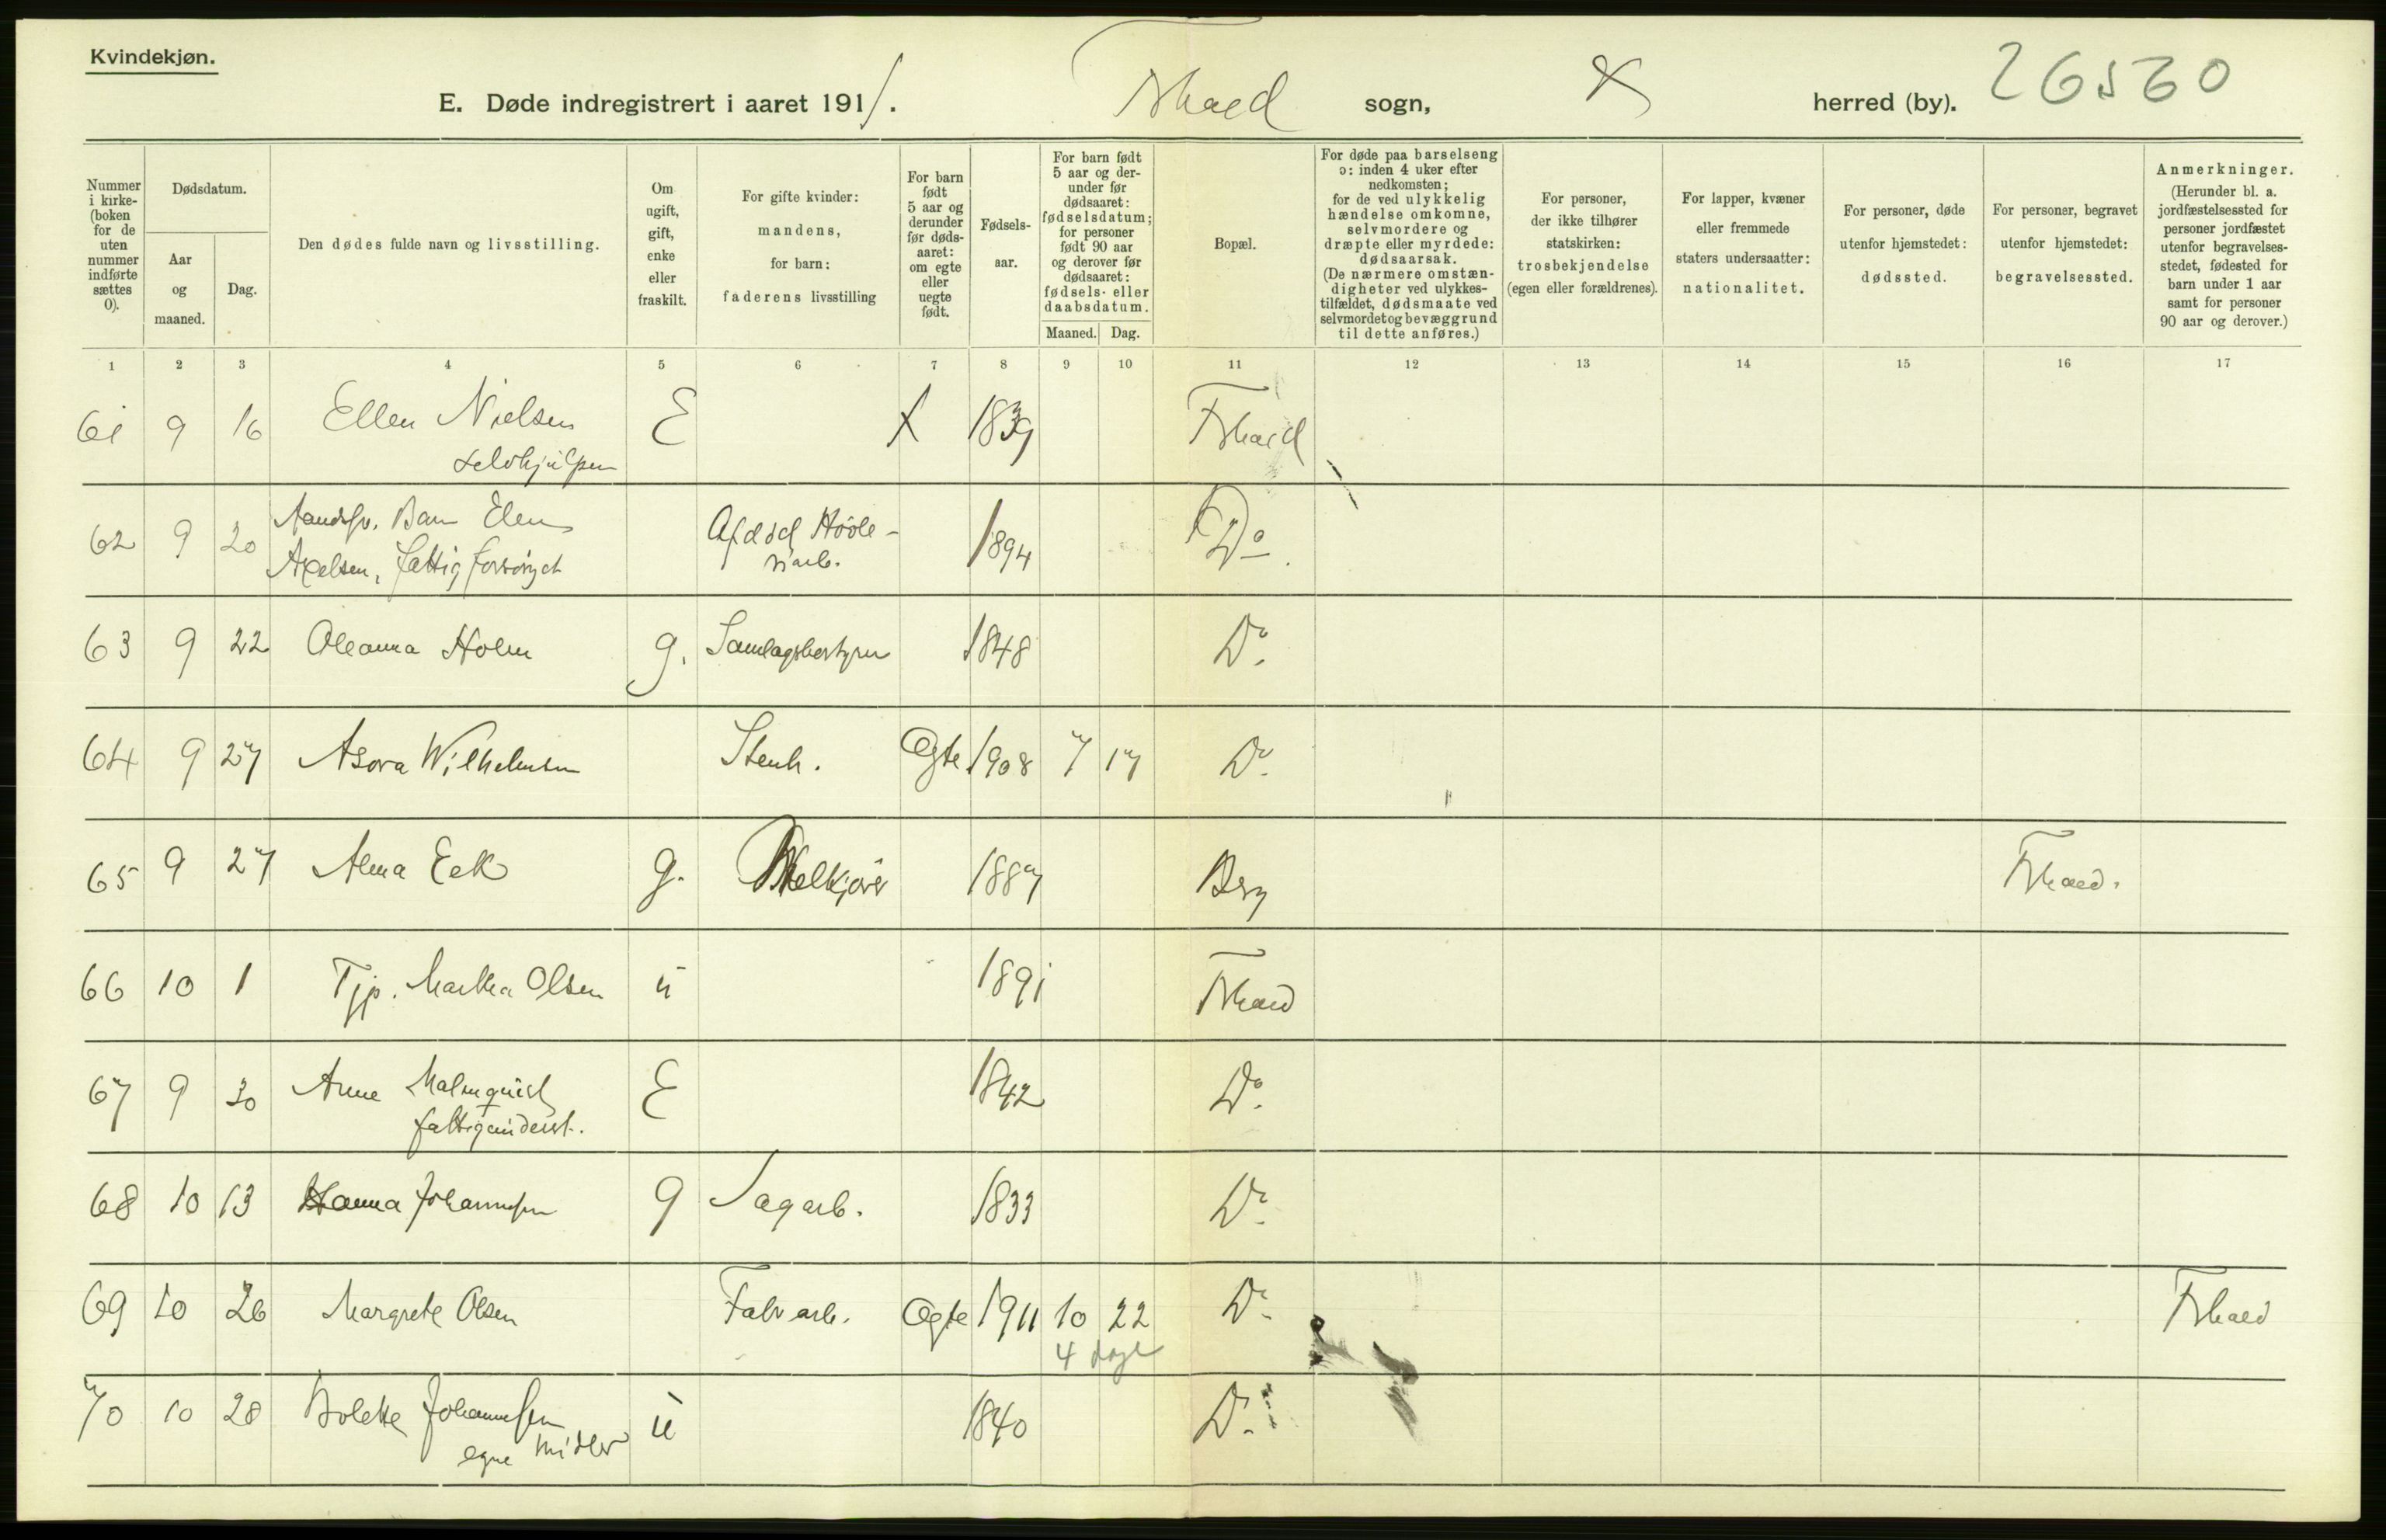 Kvindekjøn.
E. Døde indregistrert i aaret 1911. Fkhald sogn, herred (by). 26560
Nummer i kirke-(boken for de uten nummer indførte sættes 0).
Dødsdatum.
Aar og maaned.
Dag.
Den dødes fulde navn og livsstilling.
Om ugift, gift, enke eller fraskilt.
For gifte kvinder: mandens, for barn: faderens livsstilling
For barn født 5 aar og derunder før døds-aaret: om egte eller uegte født.
Fødsels-aar.
For barn født 5 aar og der-under før dødsaaret: fødselsdatum; for personer født 90 aar og derover før dødsaaret: fødsels- eller daabsdatum.
Maaned. Dag.
Bopæl.
For døde paa barselseng ɔ: inden 4 uker efter nedkomsten; for de ved ulykkelig hændelse omkomne, selvmordere og dræpte eller myrdede: dødsaarsak. (De nærmere omstæn-digheter ved ulykkes-tilfældet, dødsmaate ved selvmordet og bevæggrund til dette anføres.)
For personer, der ikke tilhører statskirken: trosbekjendelse (egen eller forældrenes).
For lapper, kvæner eller fremmede staters undersaatter: nationalitet.
For personer, døde utenfor hjemstedet: dødssted.
For personer, begravet utenfor hjemstedet: begravelsessted.
Anmerkninger. (Herunder bl. a. jordfæstelsessted for personer jordfæstet utenfor begravelses-stedet, fødested for barn under 1 aar samt for personer 90 aar og derover.)
1 2 3 4 5 6 7 8 9 10 11 12 13 14 15 16 17
61 9 16 Ellen Nielsen E X 1839 Fkhald
selvhjulpen
62 9 20 Aandssv. Barn Elen Afdød Høvle- 1894 Do
Axelsen, fattigforsörget riarb.
63 9 22 Oleanna Holm g. Samlagsbestyrer 1848 Do
64 9 27 Asora Wilhelmsen Stenh. Egte 1908 7 17 Do
65 9 27 Alma Eek g. Melkjører 1887 Berg Fkhald.
66 10 1 Tjp. Martha Olsen u 1891 Fkhald
67 9 30 Anne Malmquist E 1842 Do
fattigunderst.
68 10 13 Hanna Johannesen g Sagarb. 1833 Do
69 10 26 Margrete Olsen Fabrarb. Egte 1911 10 22 Do Fkhald
4 dage
70 10 28 Bolette Johannesen u 1840 Do
egne midler